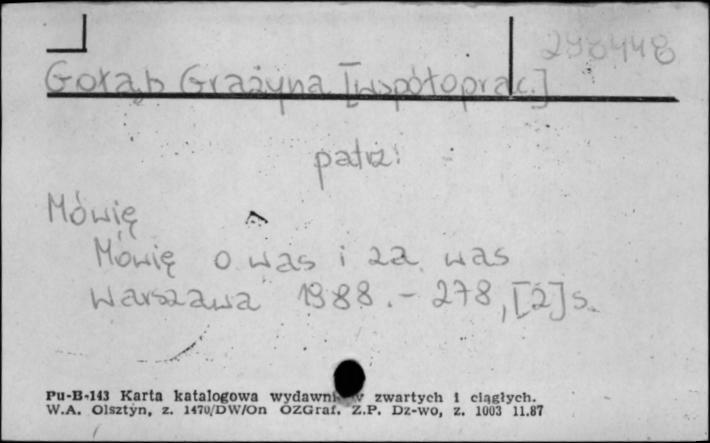 298448
Gołąb Grażyna [współoprac.]
patrz:
Mówię
Mówię o was i za was
Warszawa 1988. - 278, [2] s.
Pu-B-143 Karta katalogowa wydawn w zwartych i ciągłych.
W.A. Olsztyn, z. 1470/DW/On OZGraf. Z.P. Dz-wo, z. 1003 11.87